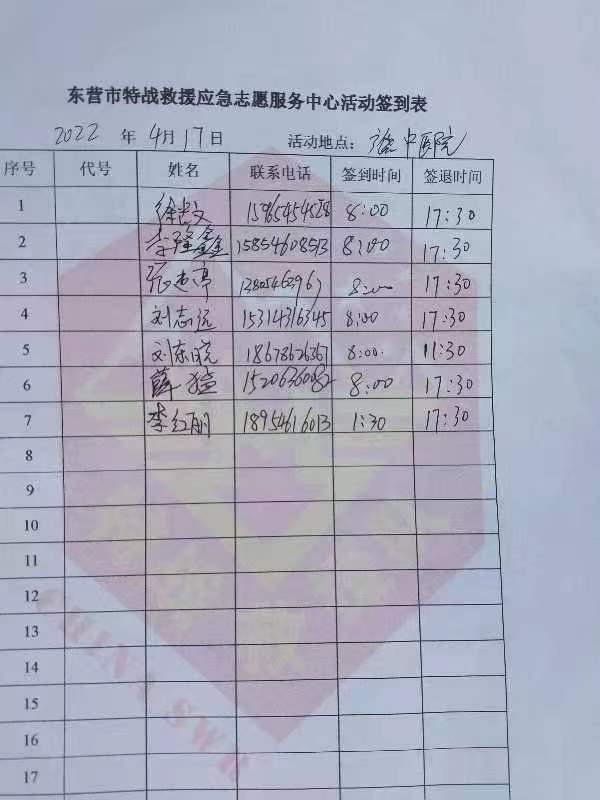 东营市特战救援应急志愿服务中心活动签到表
2022 年 4月 17日 活动地点: 中医院
序号 代号 姓名 联系电话 签到时间 签退时间
1 徐 15965454528 8:00 17:30
2 李隆鑫 15854608513 8:00 17:30
3 张 8:00 17:30
4 刘志远 15314316345 8:00 17:30
5 刘东晓 18678626367 8:00 11:30
6 薛猛 15206360082 8:00 17:30
7 李红丽 18954616013 1:30 17:30
8
9
10
11
12
13
14
15
16
17
CHINA SWR